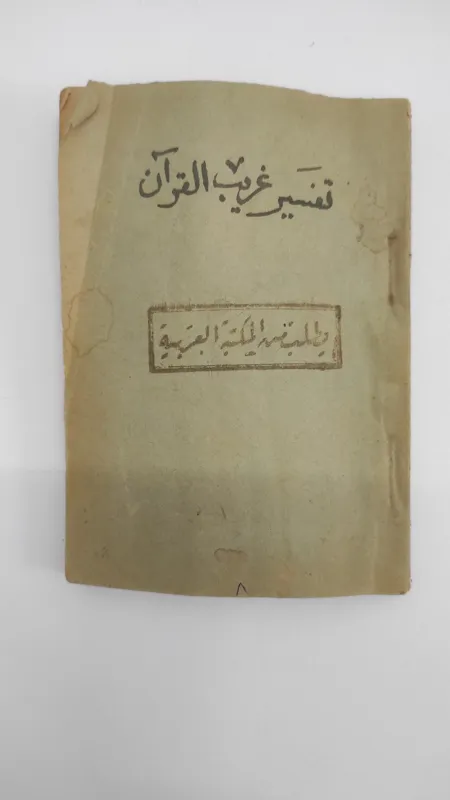 تفسير غريب القرآن
يطلب من المكتبة العربية
٨